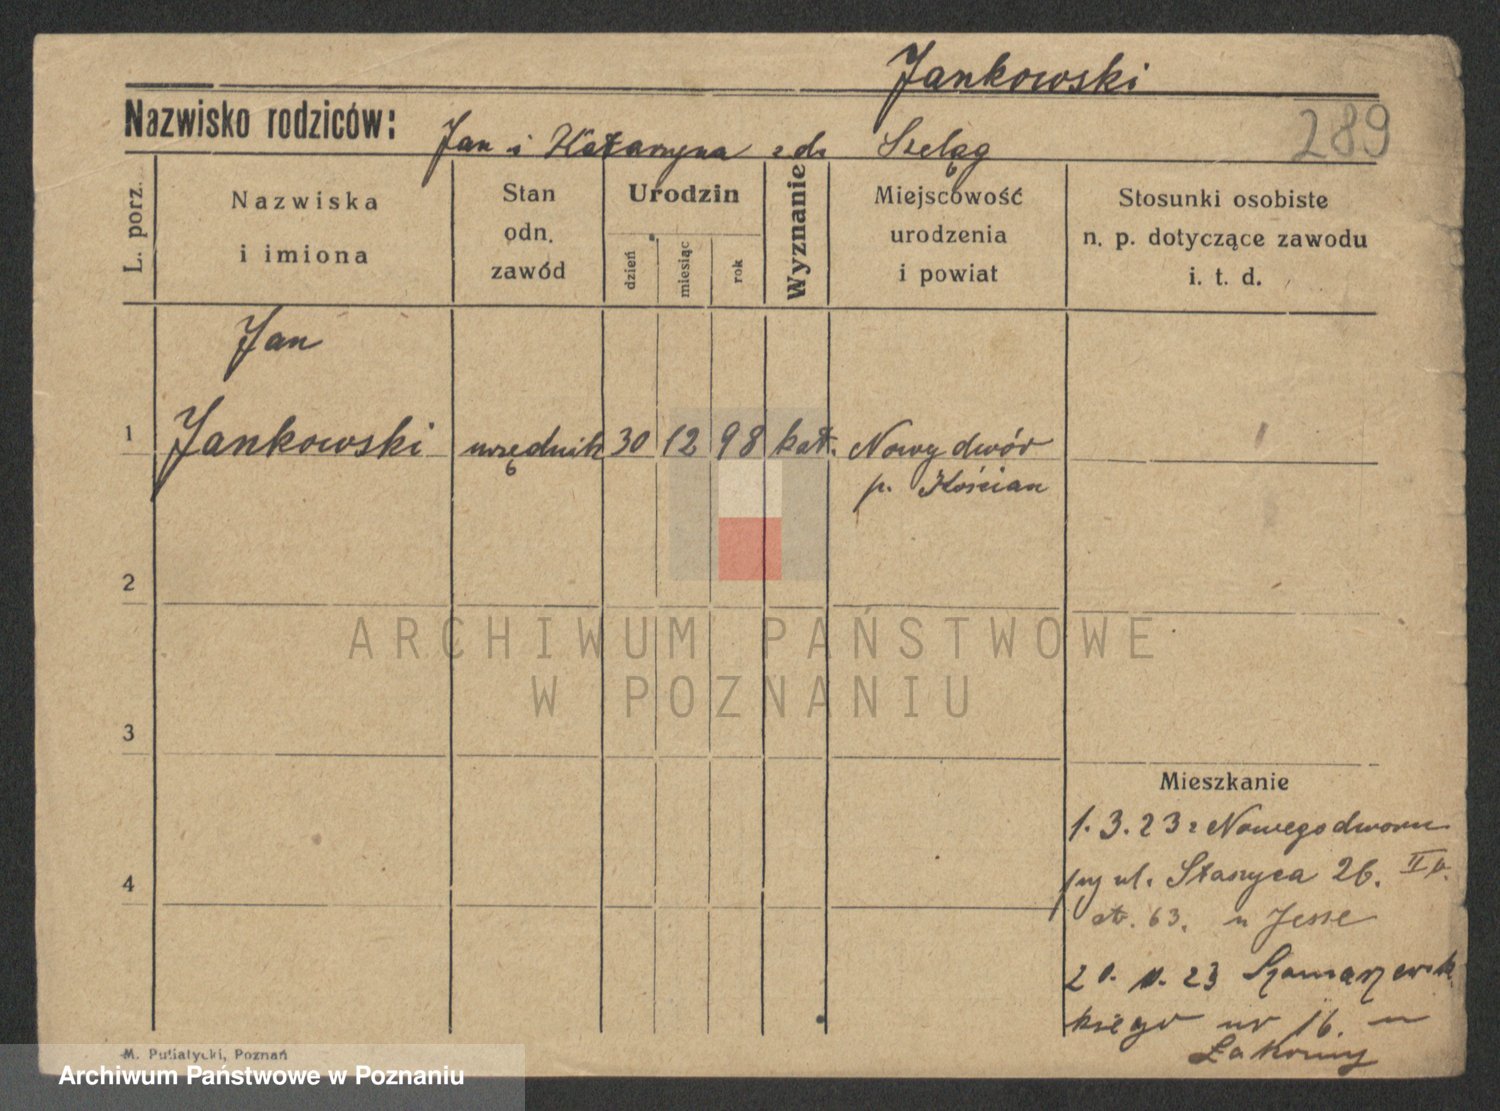 Jankowski
Nazwisko rodziców:
Jan i Katarzyna z d. Szeląg
289
L. porz.
Nazwiska
i imiona
Stan
odn.
zawód
Urodzin
dzień
miesiąc
rok
Wyznanie
Miejscowość
urodzenia
i powiat
Stosunki osobiste
n. p. dotyczące zawodu
i. t. d.
Jan
1 Jankowski urzędnik 30 12 98 kat. Nowy dwór
p. Kościan
2
ARCHIWUM PAŃSTWOWE
W POZNANIU
3
Mieszkanie
1.3.23 z Nowegodworu
ul. Staszyca 26. II p.
63. u Jesse
23
kiego nr 16. u
M. Putiatycki, Poznań
Archiwum Państwowe w Poznaniu
4